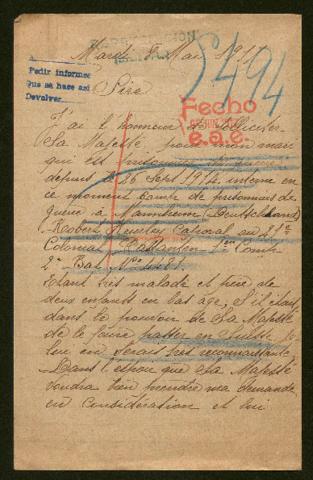 Mardi 8 Mai 1917
5494
A
Pedir informes
Que se hace así
Devolver
Sire
Fecho
e.a.e.
J'ai l'honneur de solliciter
Sa Majesté pour mon mari
qui est prisonnier de guerre
depuis le Sept 1914 interné en
ce moment Camp de prisonniers de
guerre à Mannheim Deutschland
Robert Caporal au 21e
Colonial 1ere Comp
2e Bat
Etant très malade et père de
deux enfants en bas age, s'il était
dans le pouvoir de Sa Majesté
de le faire passer en Suisse je
lui en serais très reconnaissante
Dans l'espoir que Sa Majesté
voudra bien prendre ma demande
en considération et lui